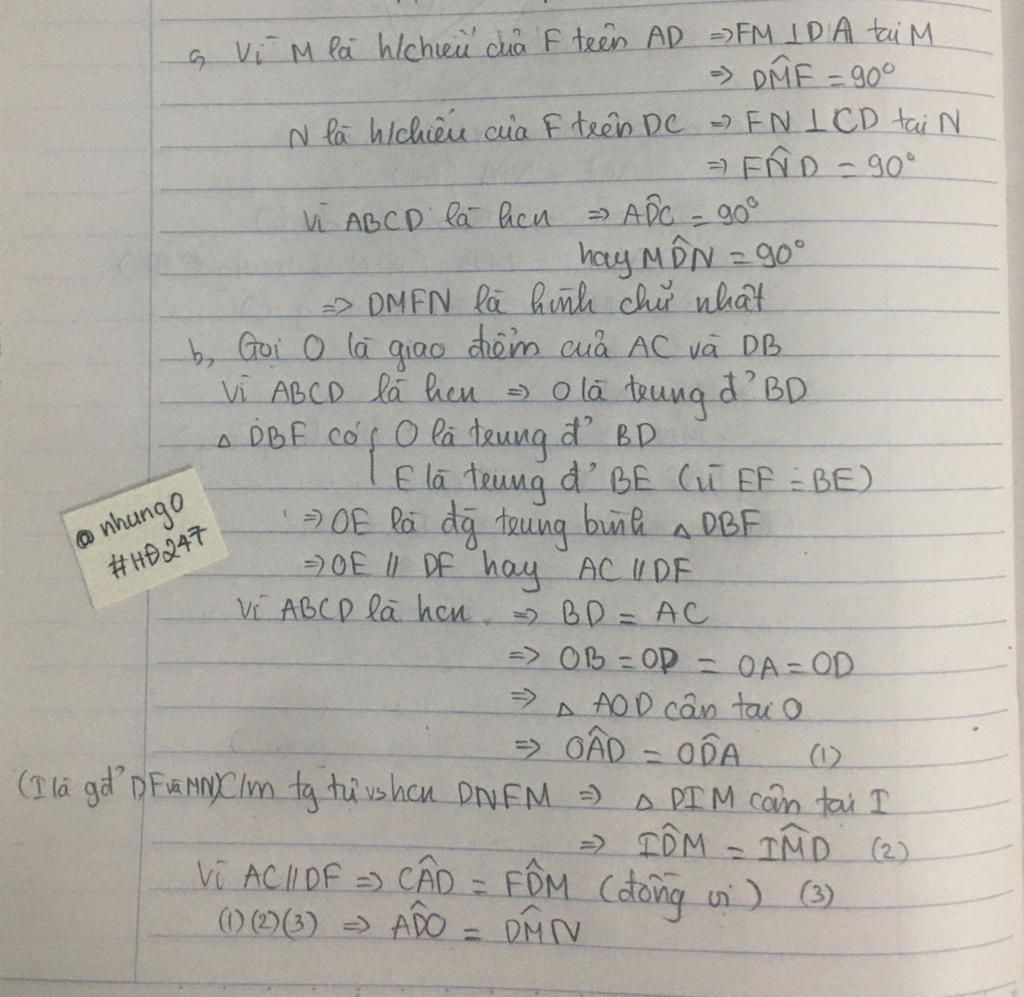 a, Vì M là h/chiếu của F trên AD ⇒ FM ⊥ DA tại M
⇒ DM̂F = 90°
N là h/chiếu của F trên DC ⇒ FN ⊥ CD tại N
⇒ FN̂D = 90°
Vì ABCD là hcn ⇒ AD̂C = 90°
hay MD̂N = 90°
⇒ DMFN là hình chữ nhật
b, Gọi O là giao điểm của AC và DB
Vì ABCD là hcn ⇒ O là trung đ' BD
△ DBF có { O là trung đ' BD
E là trung đ' BE (vì EF = BE)
⇒ OE là đg trung bình △ DBF
⇒ OE // DF hay AC // DF
@nhung0
#HĐ247
Vì ABCD là hcn ⇒ BD = AC
⇒ OB = OD = OA = OD
⇒ △ AOD cân tại O
⇒ OÂD = OD̂A (1)
(I là gđ' DF và MN) C/m tg tự vs hcn DNFM ⇒ △ DIM cân tại I
⇒ ID̂M = IM̂D (2)
Vì AC // DF ⇒ CÂD = FD̂M (đồng vị) (3)
(1)(2)(3) ⇒ AD̂O = DM̂N